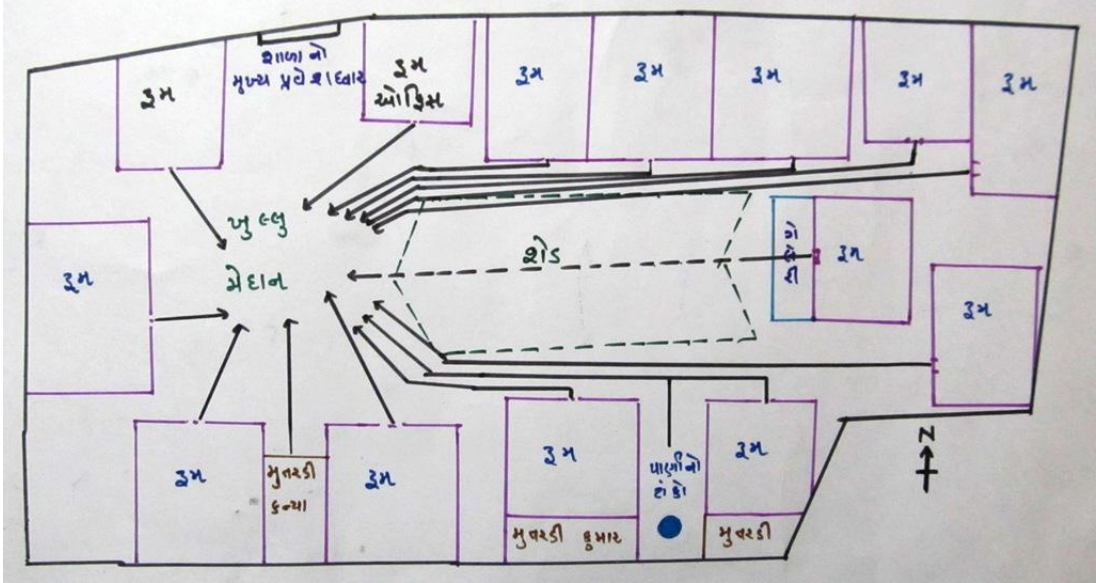 શાળાનો
મુખ્ય પ્રવેશદ્વાર
રૂમ
રૂમ
ઓફિસ
રૂમ
રૂમ
રૂમ
રૂમ
રૂમ
ખુલ્લુ
મેદાન
શેડ
ગેલેરી
રૂમ
રૂમ
રૂમ
રૂમ
મુતરડી
કન્યા
રૂમ
રૂમ
મુતરડી કુમાર
પાણીનો
ટાંકો
રૂમ
મુતરડી
N